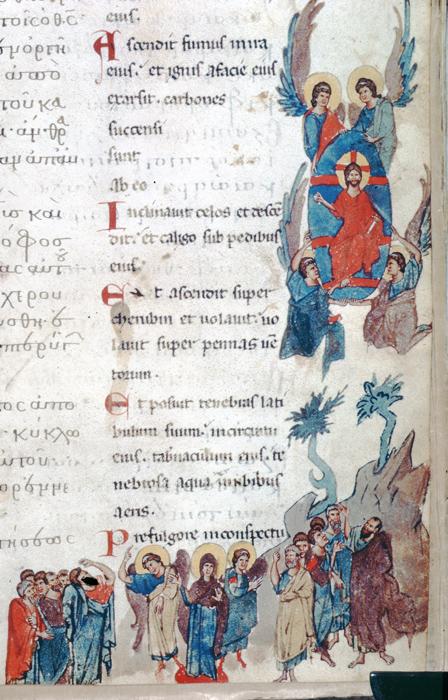 ἐνοργη
ἀπὸ
τοῦ κα
ις και
όφος
ας αὐτοῦ
χερου
ος ἀπο
κυκλω
αυτοῦ
eius.
Ascendit fumus in ira
eius. et ignis a facie eius
exarsit. carbones
succensi
sunt
ab eo
Inclinauit celos et desce
dit. et caligo sub pedibus
eius.
Et ascendit super
cherubin et uolauit. uo
lauit super pennas uē
torum.
Et posuit tenebras lati
bulum suum. in circuitu
eius. tabnaculum eius. te
nebrosa aqua in nubibus
aeris.
Prefulgore in conspectu